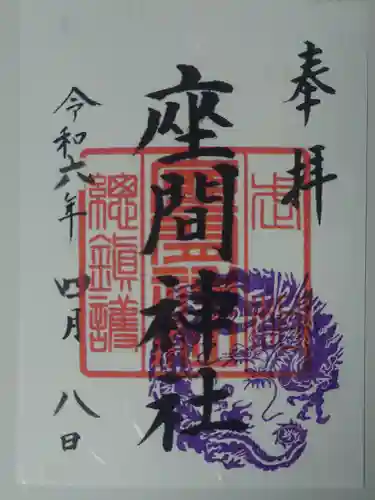 奉拝
座間神社
令和六年 四月 八日
總鎮護